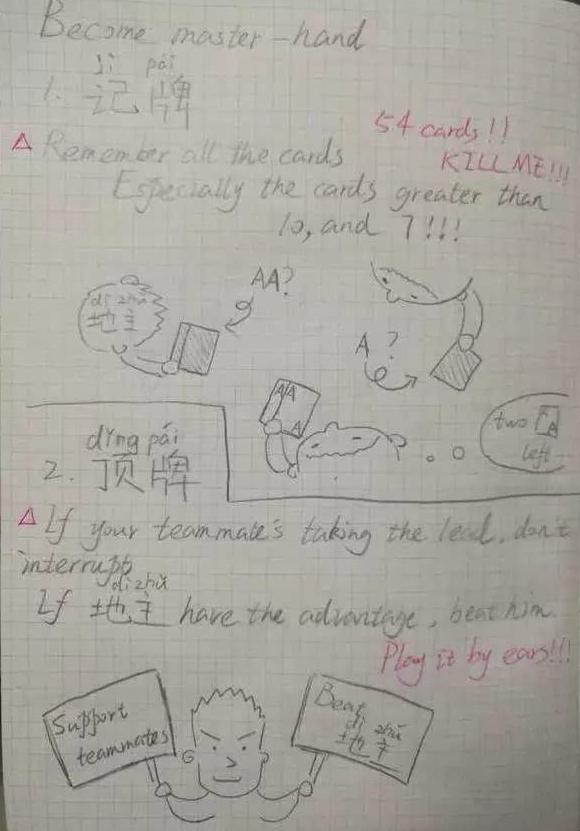 Become master-hand
jì pái
1. 记牌
54 cards!!
△ Remember all the cards
KILL ME!!!
Especially the cards greater than
10, and 7!!!
AA?
dì zhǔ
地主
A?
AA
A
two A
left
dǐng pái
2. 顶牌
△ If your teammate's taking the lead, don't
interrupt
dì zhǔ
If 地主 have the advantage, beat him
Play it by ears!!!
Support
teammates
Beat
dì zhǔ
地主